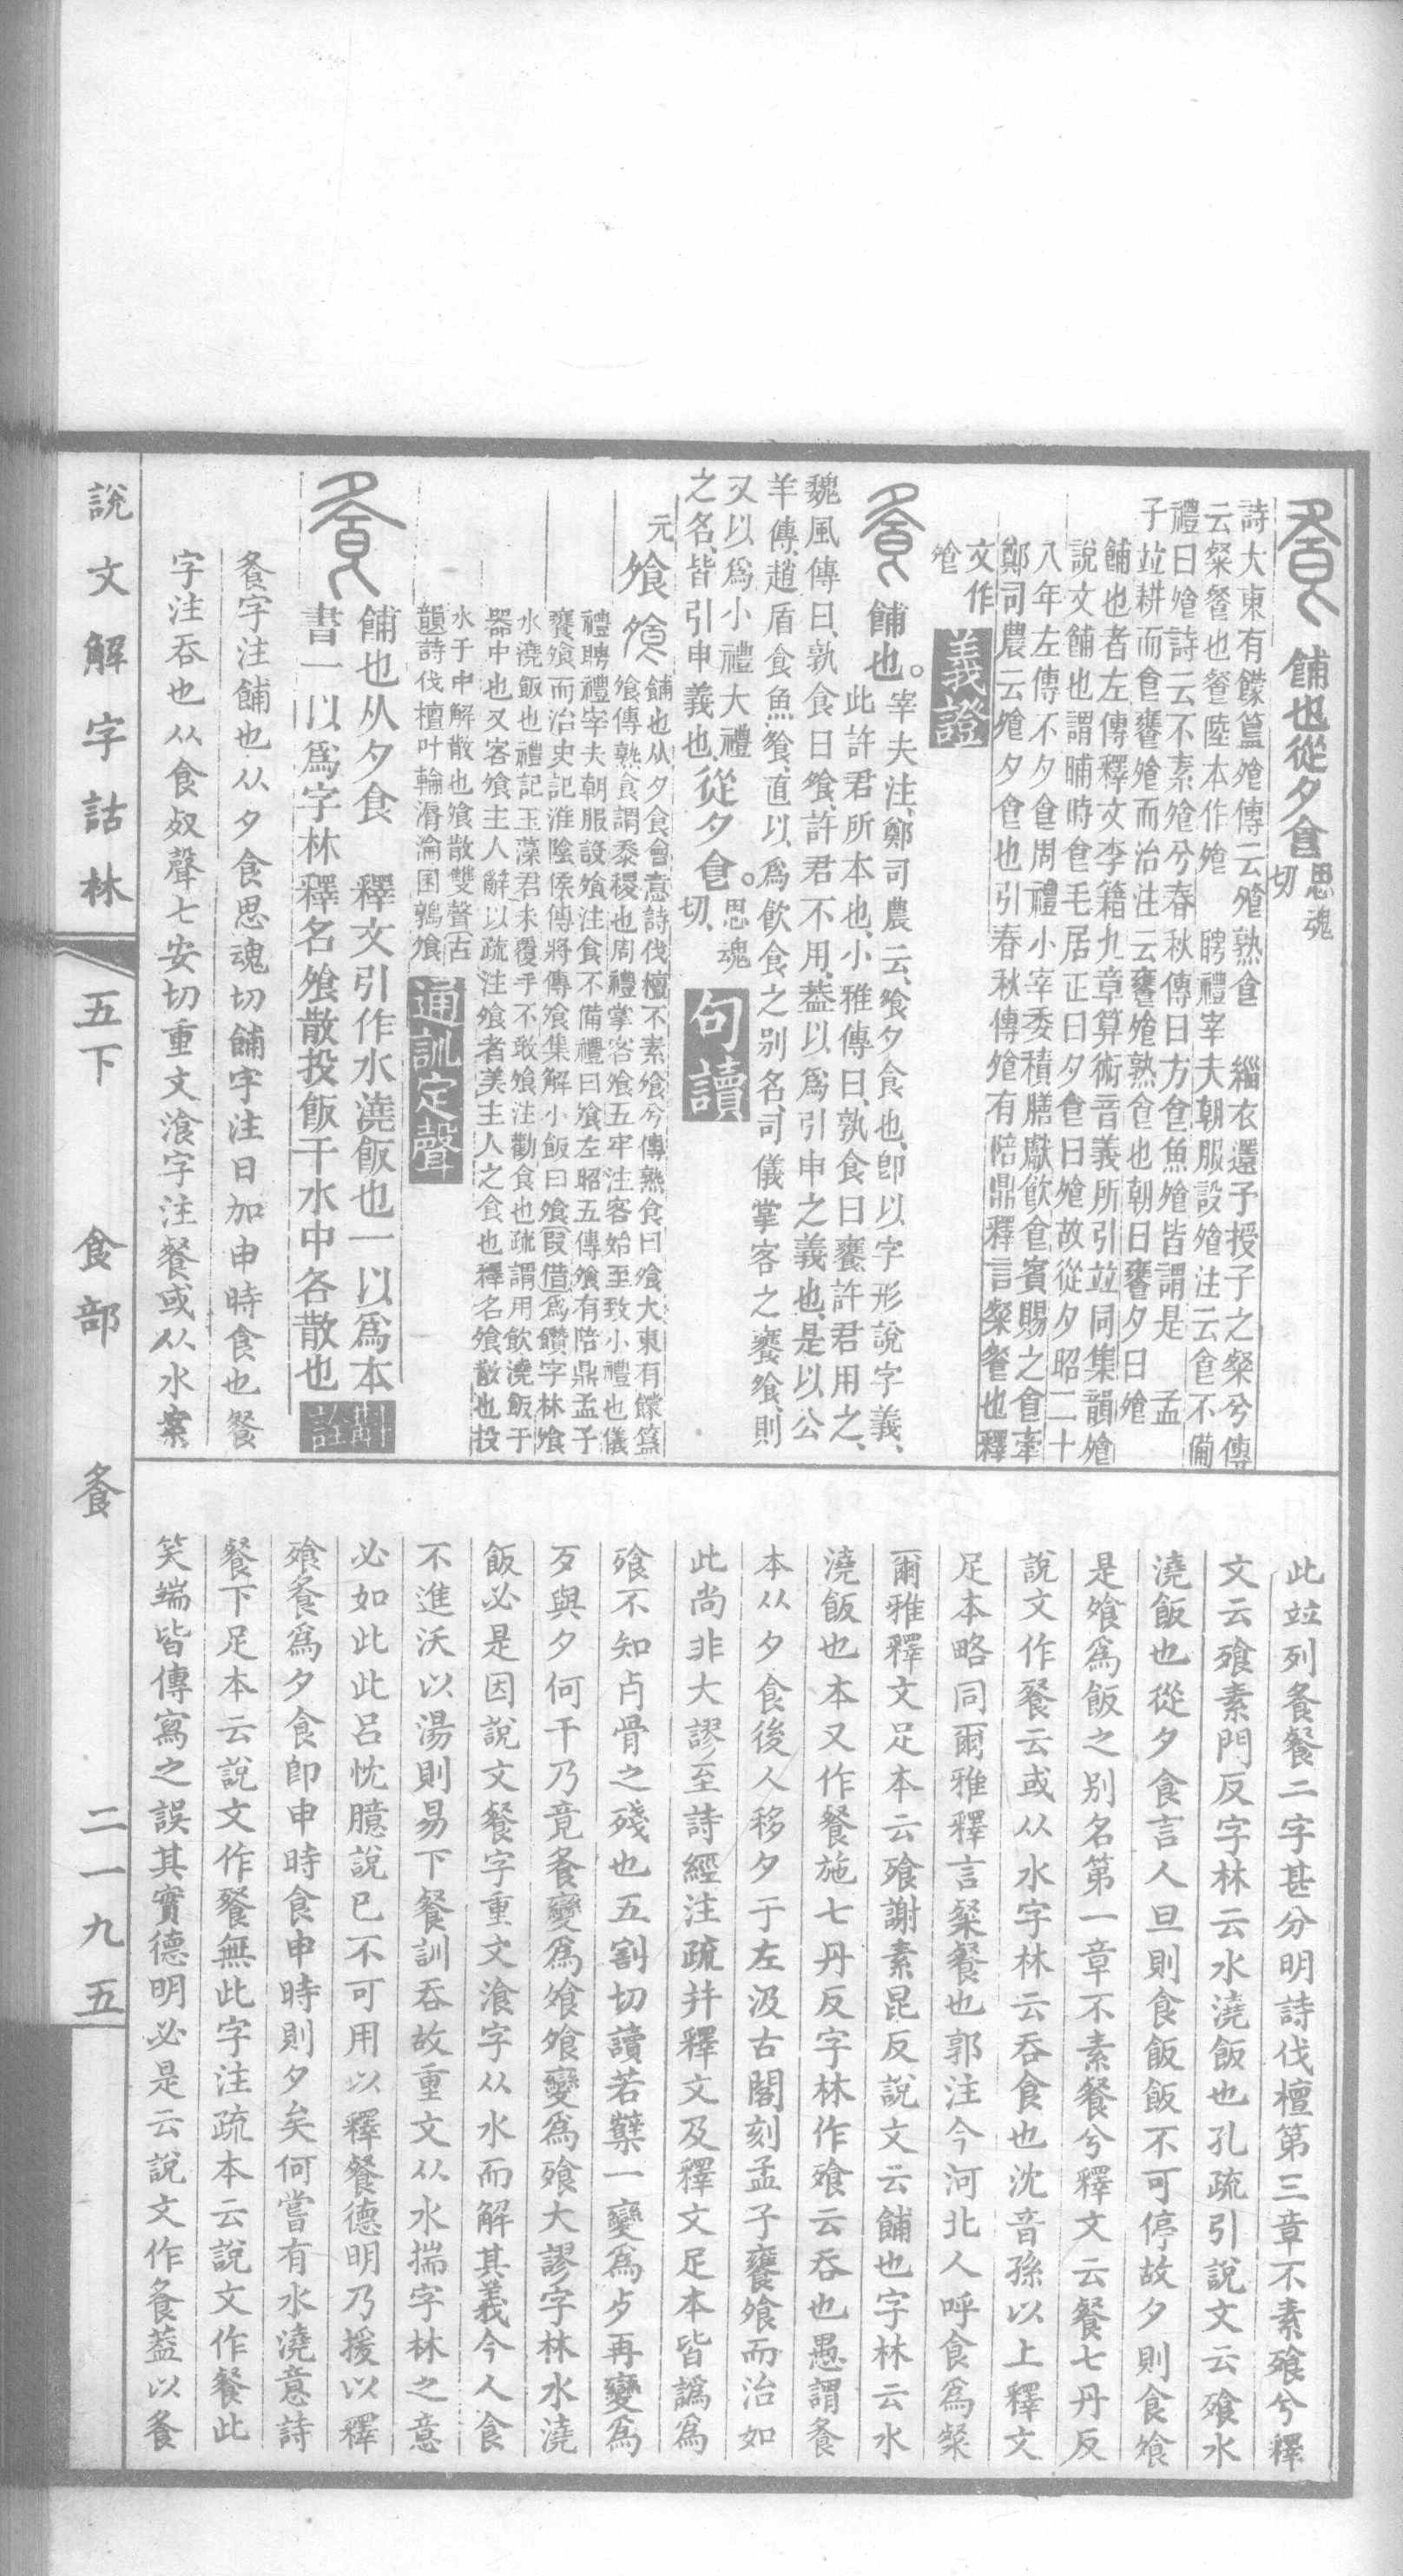 餔也從夕食思魂切
詩大東有饛簋飱傳云飱熟食　緇衣還予授子之粲兮傳
云粲餐也餐陸本作飱　聘禮宰夫朝服設飱注云食不備
禮曰飱詩云不素飱兮春秋傳曰方食魚飱皆謂是　孟
子竝耕而食饔飱而治注云饔飱熟食也朝曰饔夕曰飱
餔也者左傳釋文李籍九章算術音義所引竝同集韻飱
說文餔也謂晡時食毛居正曰夕食曰飱故從夕昭二十
八年左傳不夕食周禮小宰委積膳獻飮食賓賜之食牽
鄭司農云飱夕食也引春秋傳飱有陪鼎釋言粲餐也釋
文作飱
義證
餔也。宰夫注、鄭司農云、飧夕食也、卽以字形說字義、
此許君所本也、小雅傳曰、孰食曰饔、許君用之、
魏風傳曰、孰食曰飧、許君不用、葢以爲引申之義也、是以公
羊傳、趙盾食魚飧、直以爲飮食之别名、司儀掌客之饔飧、則
又以爲小禮大禮
之名、皆引申義也、從夕食。思魂切、
句讀
元飧餔也从夕食會意詩伐檀不素飧兮傳熟食曰飧大東有饛簋
飧傳熟食謂黍稷也周禮掌客飧五牢注客始至致小禮也儀
禮聘禮宰夫朝服設飧注食不備禮曰飧左昭五傳飧有陪鼎孟子
饔飧而治史記淮陰侯傳將傳飧集解小飯曰飧叚借爲饡字林飧
水澆飯也禮記玉藻君未覆手不敢飧注勸食也疏謂用飮澆飯于
器中也又客飧主人辭以疏注飧者美主人之食也釋名飧散也投
水于中解散也飧散雙聲古
韻詩伐檀叶輪漘淪囷鶉飧
通訓定聲
餔也从夕食　釋文引作水澆飯也一以爲本
書一以爲字林釋名飧散投飯于水中各散也
斠詮
飧字注餔也从夕食思魂切餔字注日加申時食也餐
字注吞也从食奴聲七安切重文湌字注餐或从水案
此竝列飧餐二字甚分明詩伐檀第三章不素飱兮釋
文云飱素門反字林云水澆飯也孔疏引說文云飱水
澆飯也從夕食言人旦則食飯飯不可停故夕則食飧
是飧爲飯之别名第一章不素餐兮釋文云餐七丹反
說文作餐云或从水字林云吞食也沈音孫以上釋文
足本略同爾雅釋言粲餐也郭注今河北人呼食爲粲
爾雅釋文足本云飱謝素昆反說文云餔也字林云水
澆飯也本又作餐施七丹反字林作飱云吞也愚謂飧
本从夕食後人移夕于左汲古閣刻孟子饔飧而治如
此尚非大謬至詩經注疏并釋文及釋文足本皆譌爲
飱不知歺骨之殘也五割切讀若櫱一變爲歺再變爲
歹與夕何干乃竟飧變爲飧飧變爲飱大謬字林水澆
飯必是因說文餐字重文湌字从水而解其義今人食
不進沃以湯則易下餐訓吞故重文从水揣字林之意
必如此此呂忱臆說已不可用以釋餐德明乃援以釋
飱飧爲夕食卽申時食申時則夕矣何嘗有水澆意詩
餐下足本云說文作餐無此字注疏本云說文作餐此
笑端皆傳寫之誤其實德明必是云說文作飧葢以飧
說文解字詁林
五下
食部
飧
二一九五